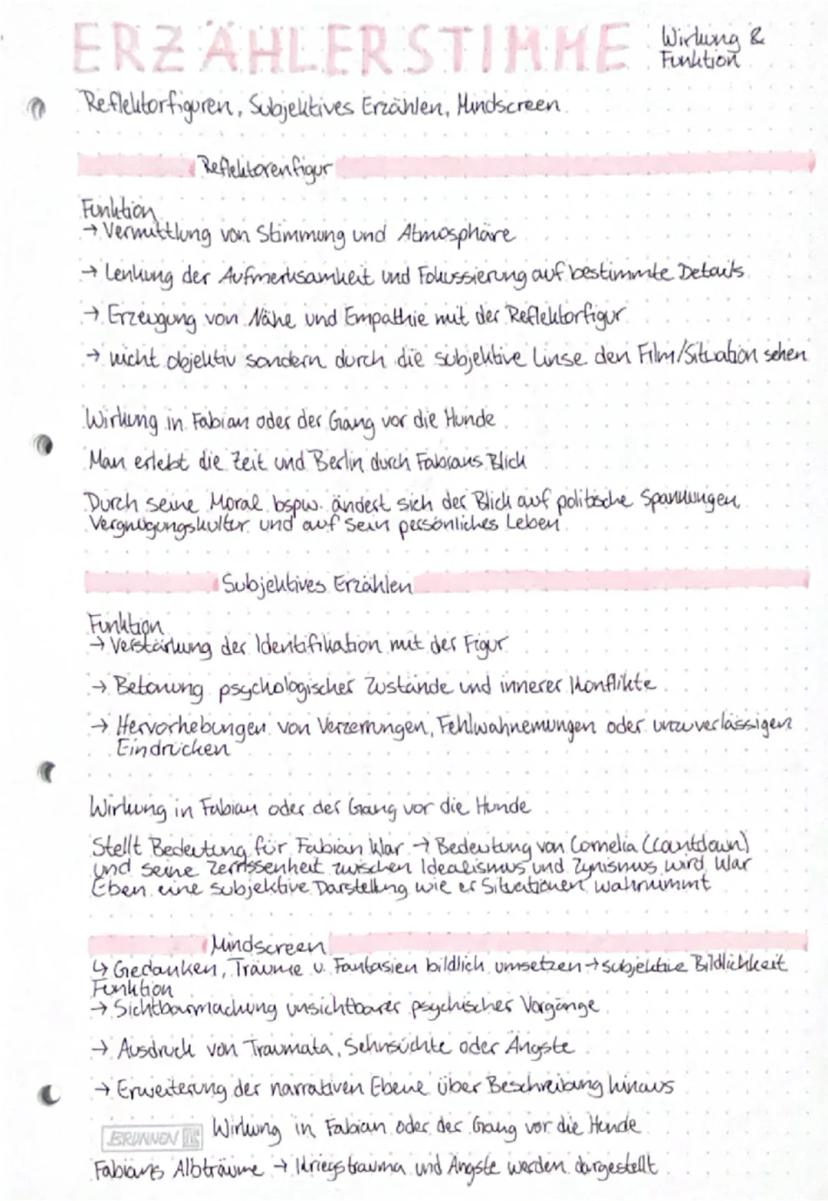 ERZÄHLERSTIMME Wirkung &
Funktion
Reflektorfiguren, Subjektives Erzählen, Mindscreen
Reflektorenfigur
Funktion
→ Vermittlung von Stimmung und Atmosphäre
→ Lenkung der Aufmerksamkeit und Fokussierung auf bestimmte Details
→ Erzeugung von Nähe und Empathie mit der Reflektorfigur
→ nicht objektiv sondern durch die subjektive Linse den Film/Situation sehen
Wirkung in Fabian oder der Gang vor die Hunde
Man erlebt die Zeit und Berlin durch Fabians Blick
Durch seine Moral bspw. ändert sich der Blick auf politische Spannungen,
Vergnügungskultur und auf sein persönliches Leben
Subjektives Erzählen
Funktion
→ Verstärkung der Identifikation mit der Figur
→ Betonung psychologischer Zustände und innerer Konflikte
→ Hervorhebungen von Verzerrungen, Fehlwahnemungen oder unzuverlässigen
Eindrücken
Wirkung in Fabian oder der Gang vor die Hunde
Stellt Bedeutung für Fabian klar → Bedeutung von Cornelia (Countdown)
und seine Zerrissenheit zwischen Idealismus und Zynismus wird klar
Eben eine subjektive Darstellung wie er Situationen wahrnimmt
Mindscreen
↳ Gedanken, Träume u. Fantasien bildlich umsetzen → subjektive Bildlichkeit
Funktion
→ Sichtbarmachung unsichtbarer psychischer Vorgänge
→ Ausdruck von Traumata, Sehnsüchte oder Ängste
→ Erweiterung der narrativen Ebene über Beschreibung hinaus
BRUNNEN Wirkung in Fabian oder der Gang vor die Hunde
Fabians Albträume → Kriegstrauma und Ängste werden dargestellt